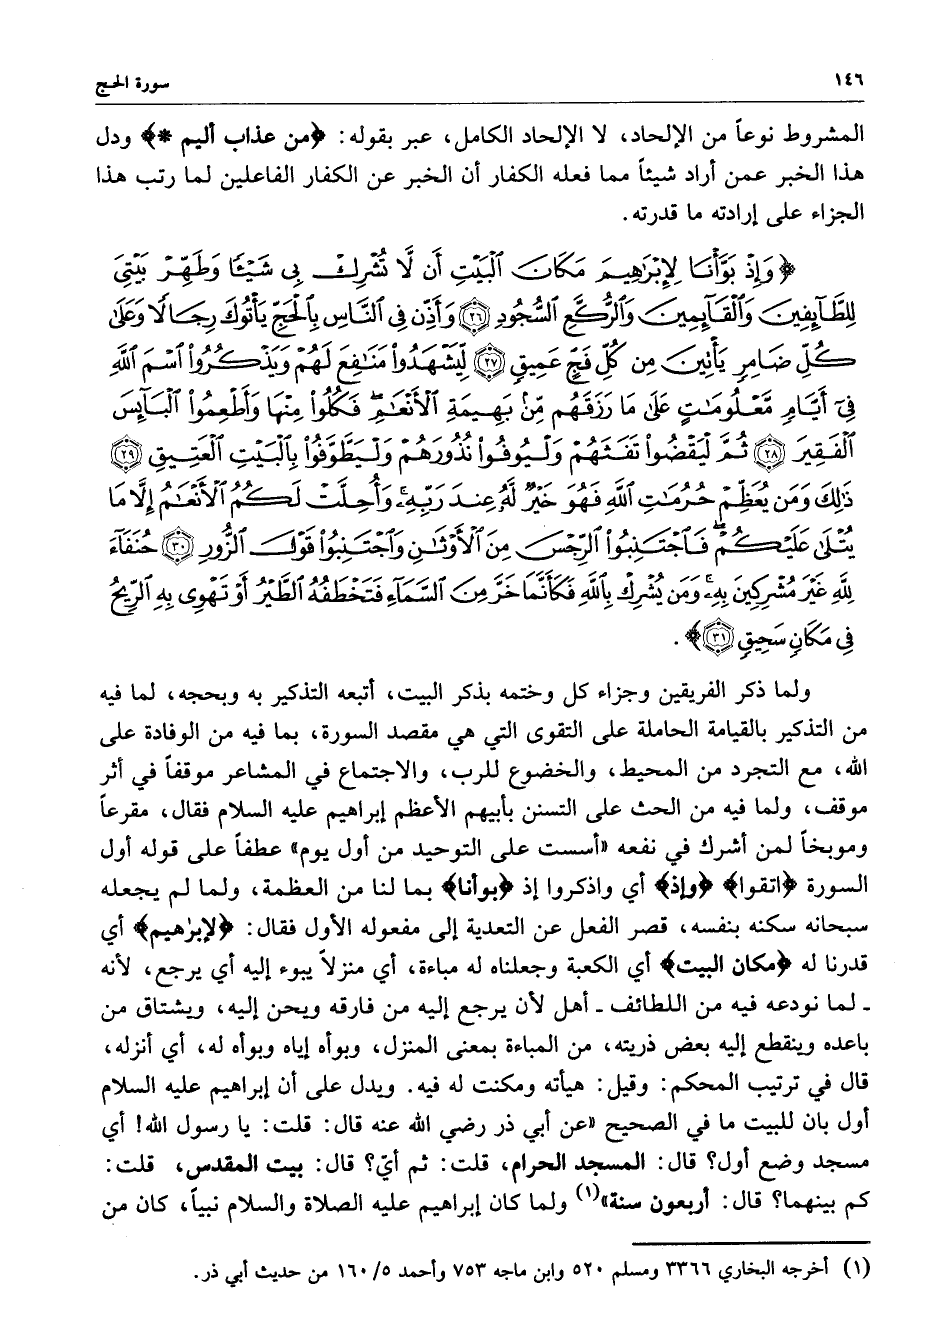 ١٤٦ سورة الحج
المشروط نوعاً من الإلحاد، لا الإلحاد الكامل، عبر بقوله: ﴿من عذاب أليم *﴾ ودل
هذا الخبر عمن أراد شيئاً مما فعله الكفار أن الخبر عن الكفار الفاعلين لما رتب هذا
الجزاء على إرادته ما قدرته.
﴿وَإِذْ بَوَّأْنَا لِإِبْرَٰهِيمَ مَكَانَ ٱلْبَيْتِ أَن لَّا تُشْرِكْ بِى شَيْـًٔا وَطَهِّرْ بَيْتِىَ
لِلطَّآئِفِينَ وَٱلْقَآئِمِينَ وَٱلرُّكَّعِ ٱلسُّجُودِ ۝٢٦ وَأَذِّن فِى ٱلنَّاسِ بِٱلْحَجِّ يَأْتُوكَ رِجَالًا وَعَلَىٰ
كُلِّ ضَامِرٍ يَأْتِينَ مِن كُلِّ فَجٍّ عَمِيقٍ ۝٢٧ لِّيَشْهَدُوا۟ مَنَٰفِعَ لَهُمْ وَيَذْكُرُوا۟ ٱسْمَ ٱللَّهِ
فِىٓ أَيَّامٍ مَّعْلُومَٰتٍ عَلَىٰ مَا رَزَقَهُم مِّنۢ بَهِيمَةِ ٱلْأَنْعَٰمِ ۖ فَكُلُوا۟ مِنْهَا وَأَطْعِمُوا۟ ٱلْبَآئِسَ
ٱلْفَقِيرَ ۝٢٨ ثُمَّ لْيَقْضُوا۟ تَفَثَهُمْ وَلْيُوفُوا۟ نُذُورَهُمْ وَلْيَطَّوَّفُوا۟ بِٱلْبَيْتِ ٱلْعَتِيقِ ۝٢٩
ذَٰلِكَ وَمَن يُعَظِّمْ حُرُمَٰتِ ٱللَّهِ فَهُوَ خَيْرٌ لَّهُۥ عِندَ رَبِّهِۦ ۗ وَأُحِلَّتْ لَكُمُ ٱلْأَنْعَٰمُ إِلَّا مَا
يُتْلَىٰ عَلَيْكُمْ ۖ فَٱجْتَنِبُوا۟ ٱلرِّجْسَ مِنَ ٱلْأَوْثَٰنِ وَٱجْتَنِبُوا۟ قَوْلَ ٱلزُّورِ ۝٣٠ حُنَفَآءَ
لِلَّهِ غَيْرَ مُشْرِكِينَ بِهِۦ ۚ وَمَن يُشْرِكْ بِٱللَّهِ فَكَأَنَّمَا خَرَّ مِنَ ٱلسَّمَآءِ فَتَخْطَفُهُ ٱلطَّيْرُ أَوْ تَهْوِى بِهِ ٱلرِّيحُ
فِى مَكَانٍ سَحِيقٍ ۝٣١﴾.
ولما ذكر الفريقين وجزاء كل وختمه بذكر البيت، أتبعه التذكير به وبحجه، لما فيه
من التذكير بالقيامة الحاملة على التقوى التي هي مقصد السورة، بما فيه من الوفادة على
الله، مع التجرد من المحيط، والخضوع للرب، والاجتماع في المشاعر موقفاً في أثر
موقف، ولما فيه من الحث على التسنن بأبيهم الأعظم إبراهيم عليه السلام فقال، مقرعاً
وموبخاً لمن أشرك في نفعه «أسست على التوحيد من أول يوم» عطفاً على قوله أول
السورة ﴿اتقوا﴾ ﴿وإذ﴾ أي واذكروا إذ ﴿بوأنا﴾ بما لنا من العظمة، ولما لم يجعله
سبحانه سكنه بنفسه، قصر الفعل عن التعدية إلى مفعوله الأول فقال: ﴿لإبرٰهيم﴾ أي
قدرنا له ﴿مكان البيت﴾ أي الكعبة وجعلناه له مباءة، أي منزلاً يبوء إليه أي يرجع، لأنه
ـ لما نودعه فيه من اللطائف ـ أهل لأن يرجع إليه من فارقه ويحن إليه، ويشتاق من
باعده وينقطع إليه بعض ذريته، من المباءة بمعنى المنزل، وبوأه إياه وبوأه له، أي أنزله،
قال في ترتيب المحكم: وقيل: هيأته ومكنت له فيه. ويدل على أن إبراهيم عليه السلام
أول بان للبيت ما في الصحيح «عن أبي ذر رضي الله عنه قال: قلت: يا رسول الله! أي
مسجد وضع أول؟ قال: المسجد الحرام، قلت: ثم أيّ؟ قال: بيت المقدس، قلت:
كم بينهما؟ قال: أربعون سنة»(١) ولما كان إبراهيم عليه الصلاة والسلام نبياً، كان من
(١) أخرجه البخاري ٣٣٦٦ ومسلم ٥٢٠ وابن ماجه ٧٥٣ وأحمد ٥/ ١٦٠ من حديث أبي ذر.